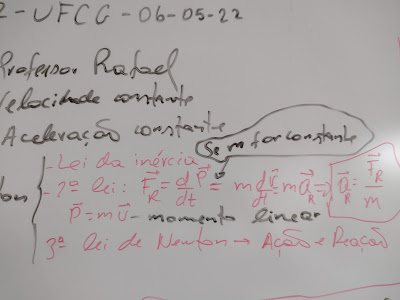 2-UFCG-06-05-22
Professor Rafael
Velocidade constante
Aceleração constante
Se m for constante
- Lei da inércia
- 2ª lei: F⃗_R = dp⃗/dt = m dv⃗/dt = m a⃗_R => a⃗_R = F⃗_R/m
p⃗ = m v⃗ - momento linear
3ª lei de Newton → Ação e Reação